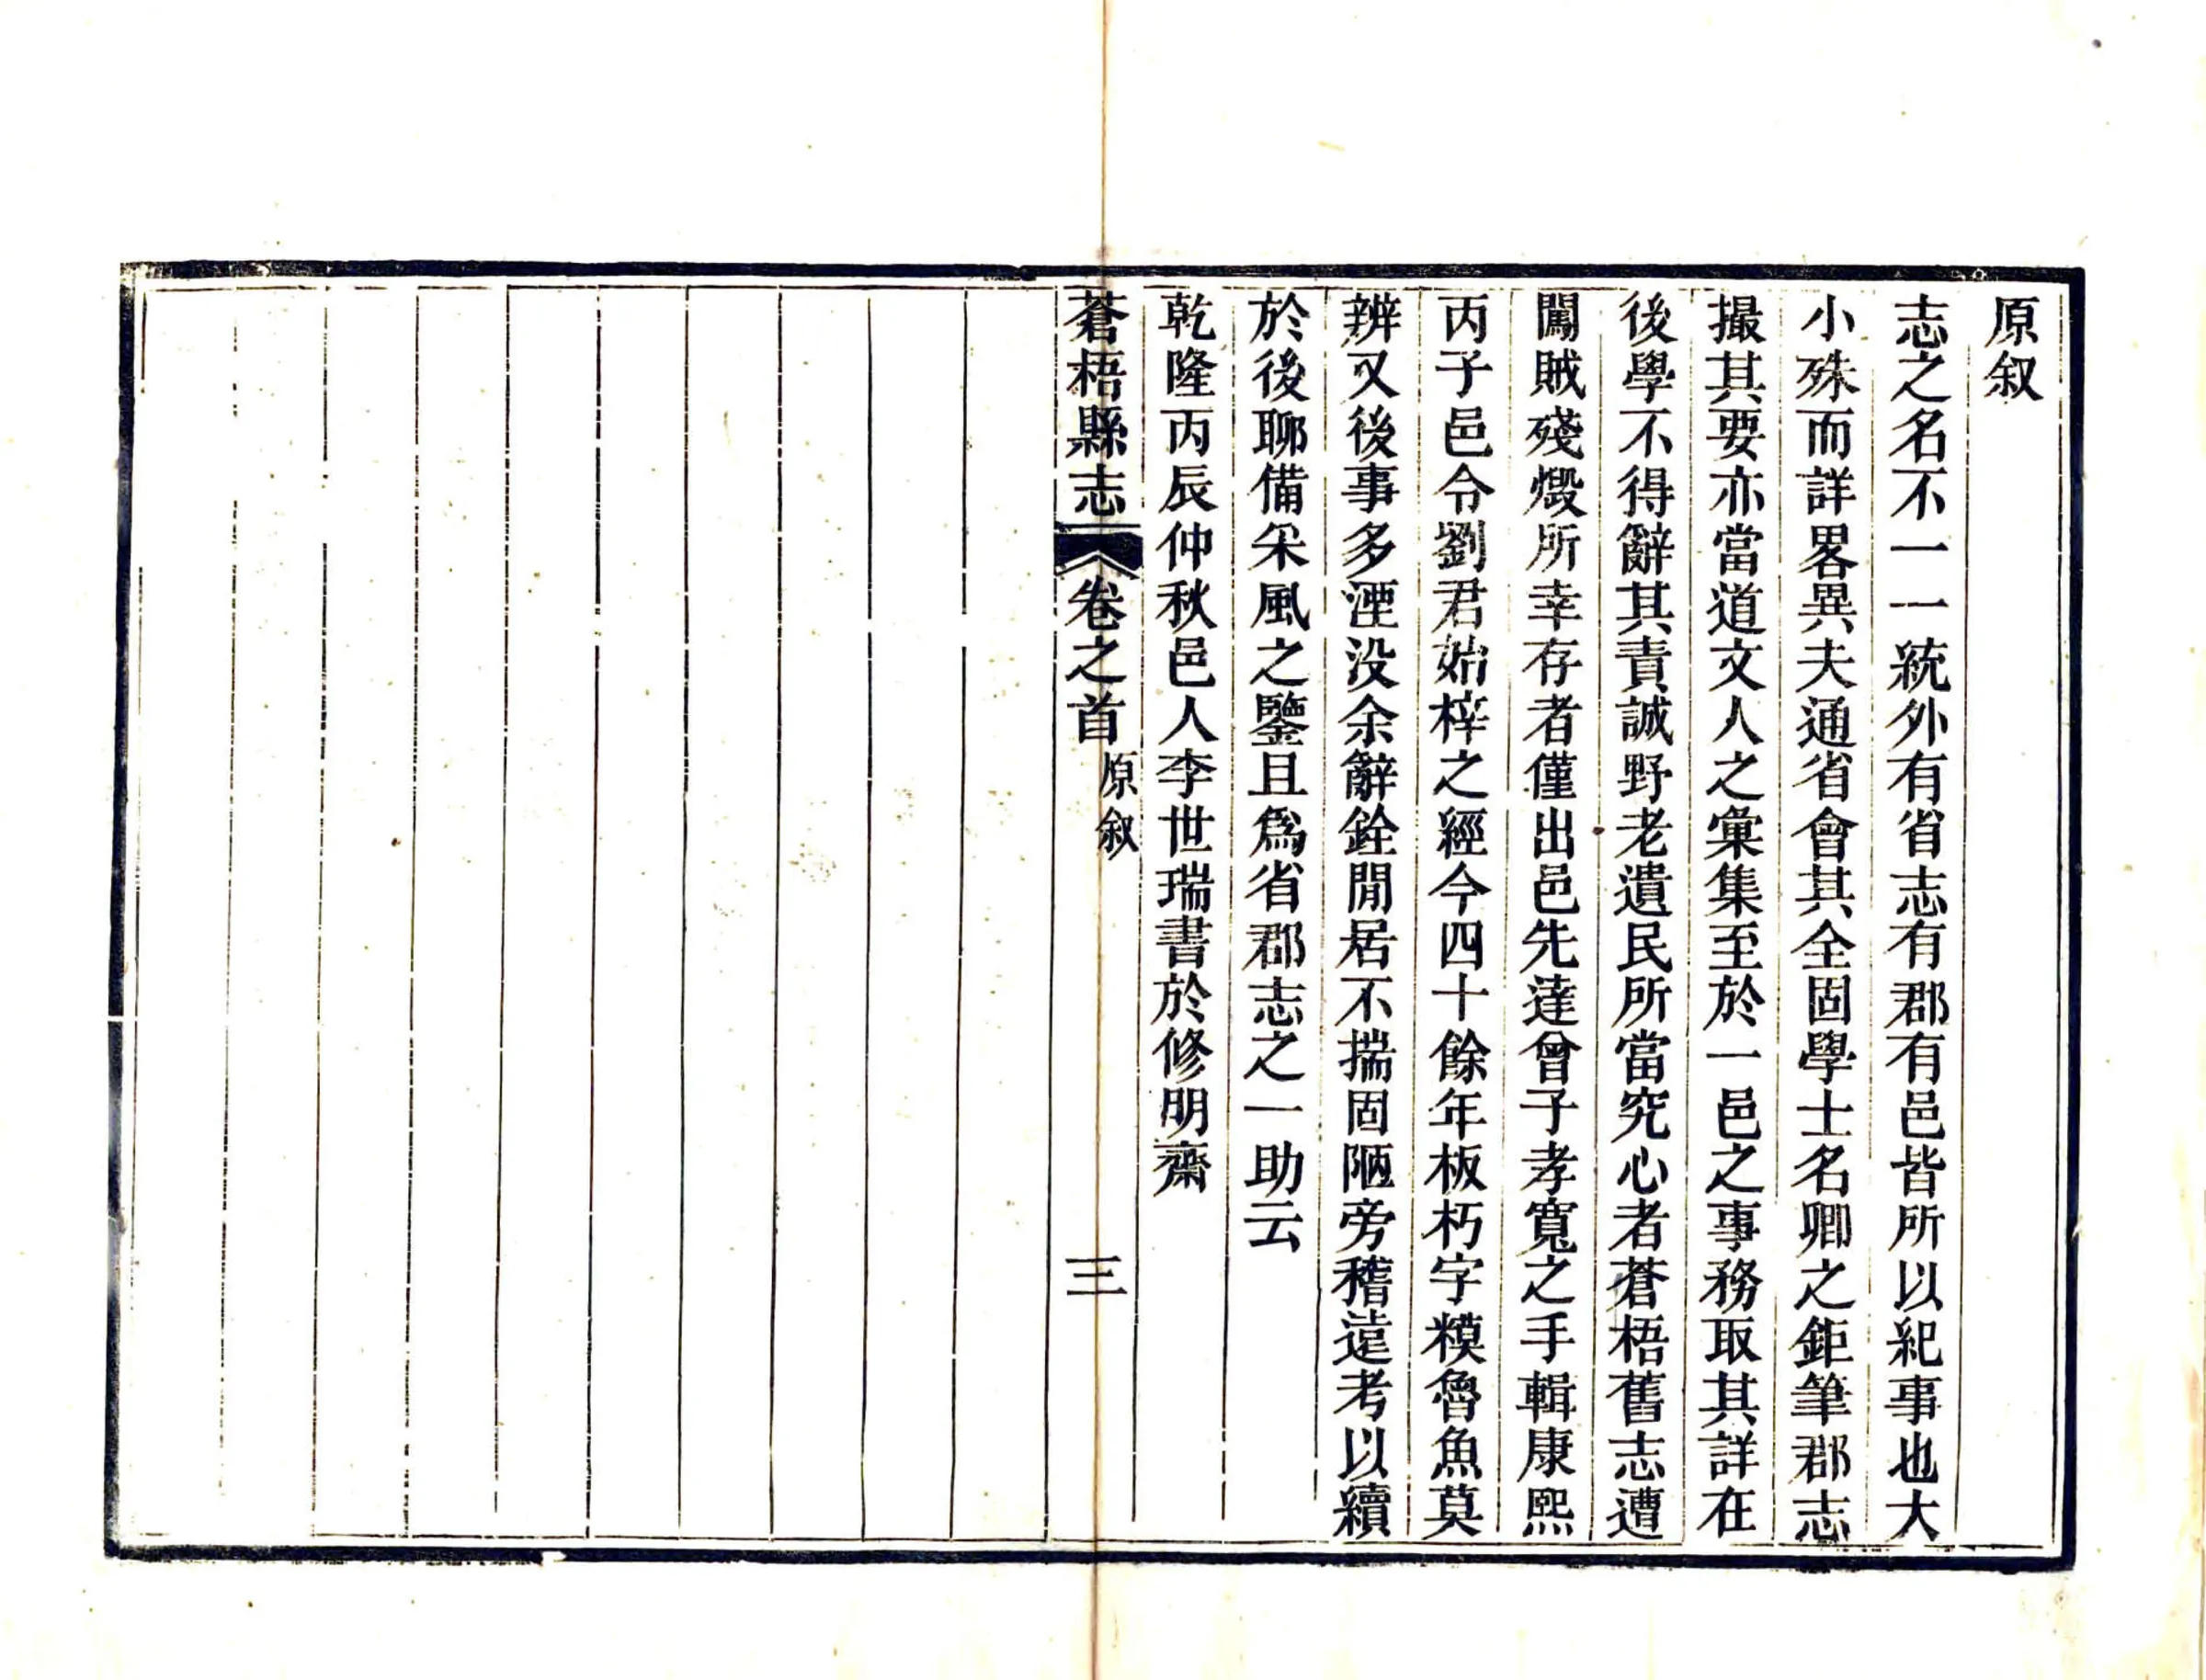 原叙
志之名不一一統外有省志有郡有邑皆所以紀事也大
小殊而詳畧異夫通省會其全固學士名卿之鉅筆郡志
撮其要亦當道文人之彙集至於一邑之事務取其詳在
後學不得辭其責誠野老遺民所當究心者蒼梧舊志遭
闖賊殘燬所幸存者僅出邑先達曾子孝寬之手輯康熙
丙子邑令劉君始梓之經今四十餘年板朽字糢魯魚莫
辨又後事多湮没余辭銓閒居不揣固陋旁稽遠考以續
於後聊備采風之鑒且爲省郡志之一助云
乾隆丙辰仲秋邑人李世瑞書於修明齋
蒼梧縣志 卷之首 原叙 三